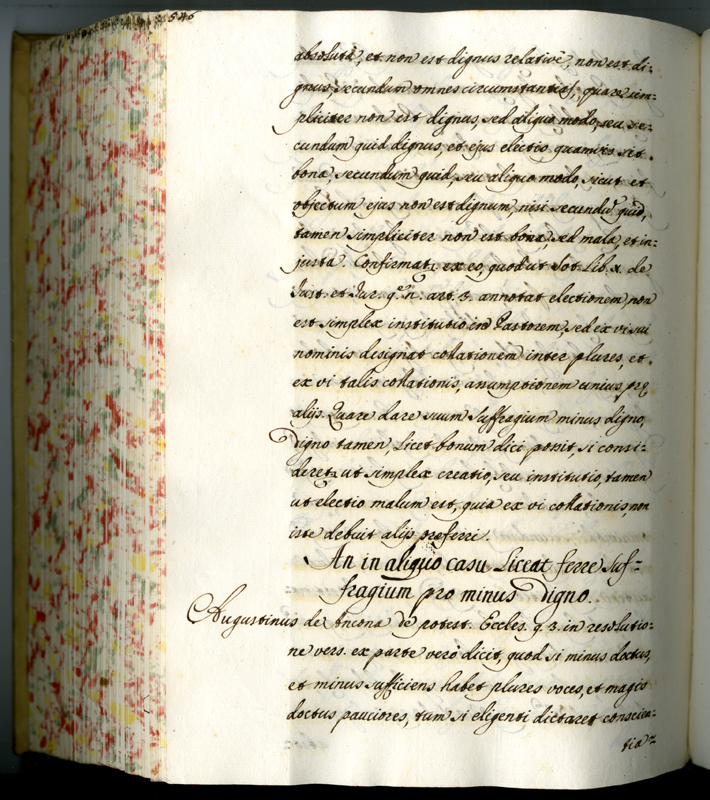 546
absolutè, et non est dignus relativè, non est di:
gnus secundum omnes circumstantias, quare sim:
pliciter non est dignus, sed aliquo modo, seu se:
cundum quid dignus, et ejus electio quamvis sit
bona secundum quid, seu aliquo modo, sicut et
objectum ejus non est dignum, nisi secundũ quid,
tamen simpliciter non est bona, sed mala, et in:
justa. Confirmat. ex eo, quod ut Sot. Lib. de
Just. et Jur. art. 3. annotat electionem, non
est simplex institutio in Pastorem, sed ex vi sui
nominis designat collationem inter plures, et
ex vi talis collationis, assumptionem unius præ
alijs. Quare dare suum suffragium minus digno,
digno tamen, licet bonum dici possit, si consi:
deret. ut simplex creatio, seu institutio, tamen
ut electio malum est, quia ex vi collationis, non
iste debuit alijs præferri.
An in aliquo casu Liceat ferre Suf=
fragium pro minus digno.
Augustinus de Ancona de potest. Eccles. q. 3. in resolutio:
ne vers. ex parte verò dicit, quod si minus doctus,
et minus sufficiens habet plures voces, et magis
doctus pauciores, tum si eligenti dictaret conscien:
tia